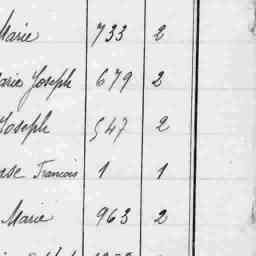 Marie 733 2
Marie Joseph 679 2
Joseph 547 2
François 1 1
Marie 963 2